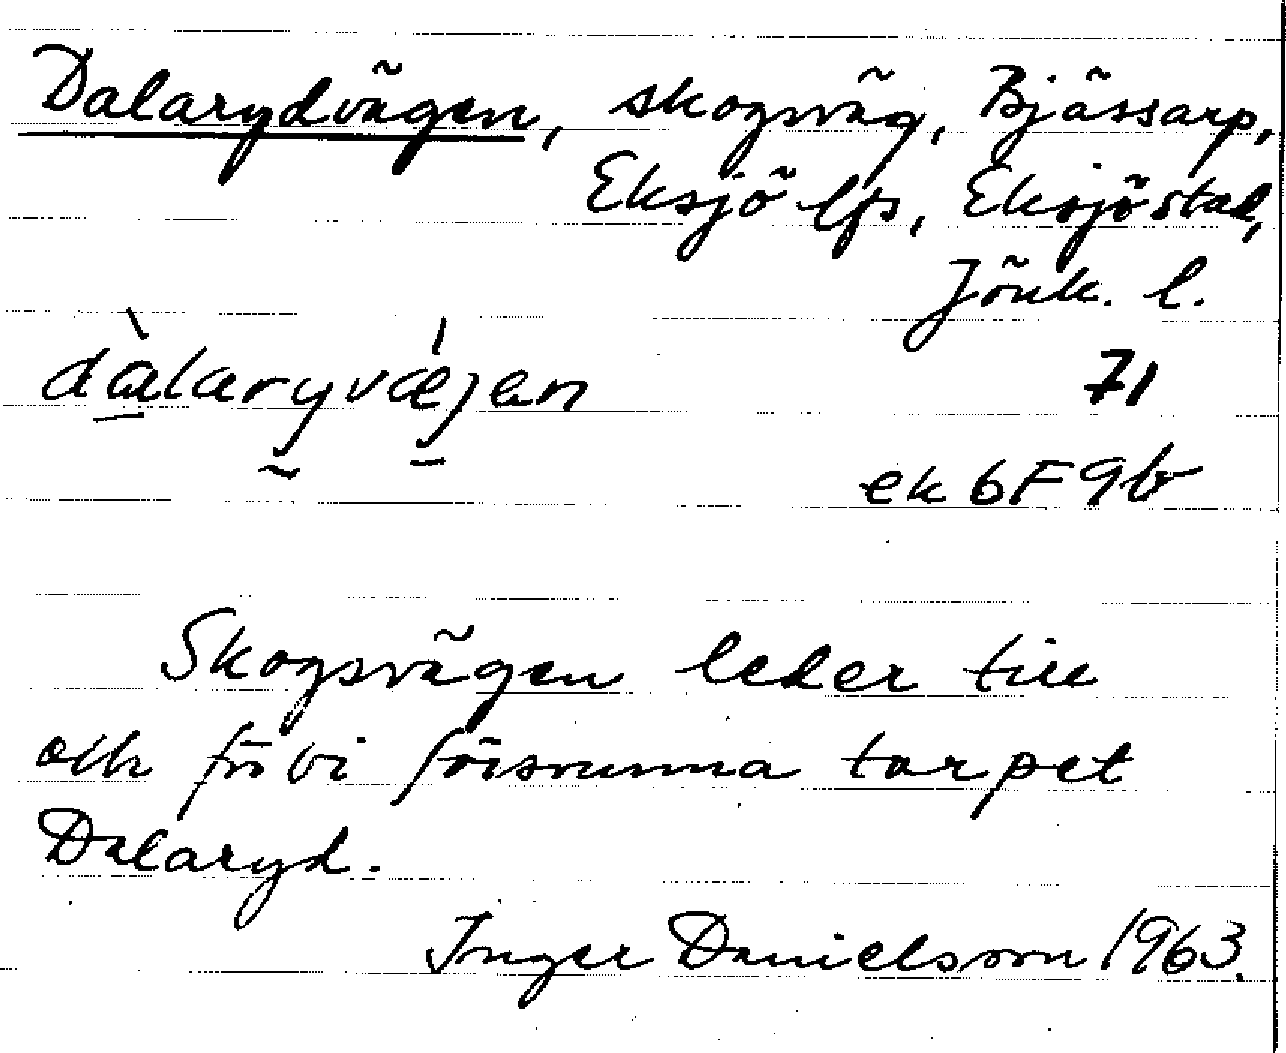 Dalarydvägen, skogsväg, Bjässarp,
Eksjö lfs, Eksjö stad,
Jönk. l.
dàlaryvǽjen
71
ek 6F9b
Skogsvägen leder till
och förbi försvunna torpet
Dalaryd.
Inger Danielsson 1963.